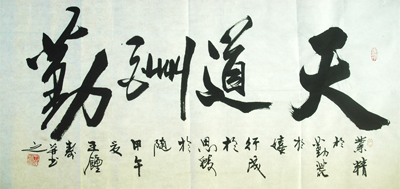 天道酬勤
業精
於
勤荒
於
嬉
行成
於
思毀
於
隨
甲午